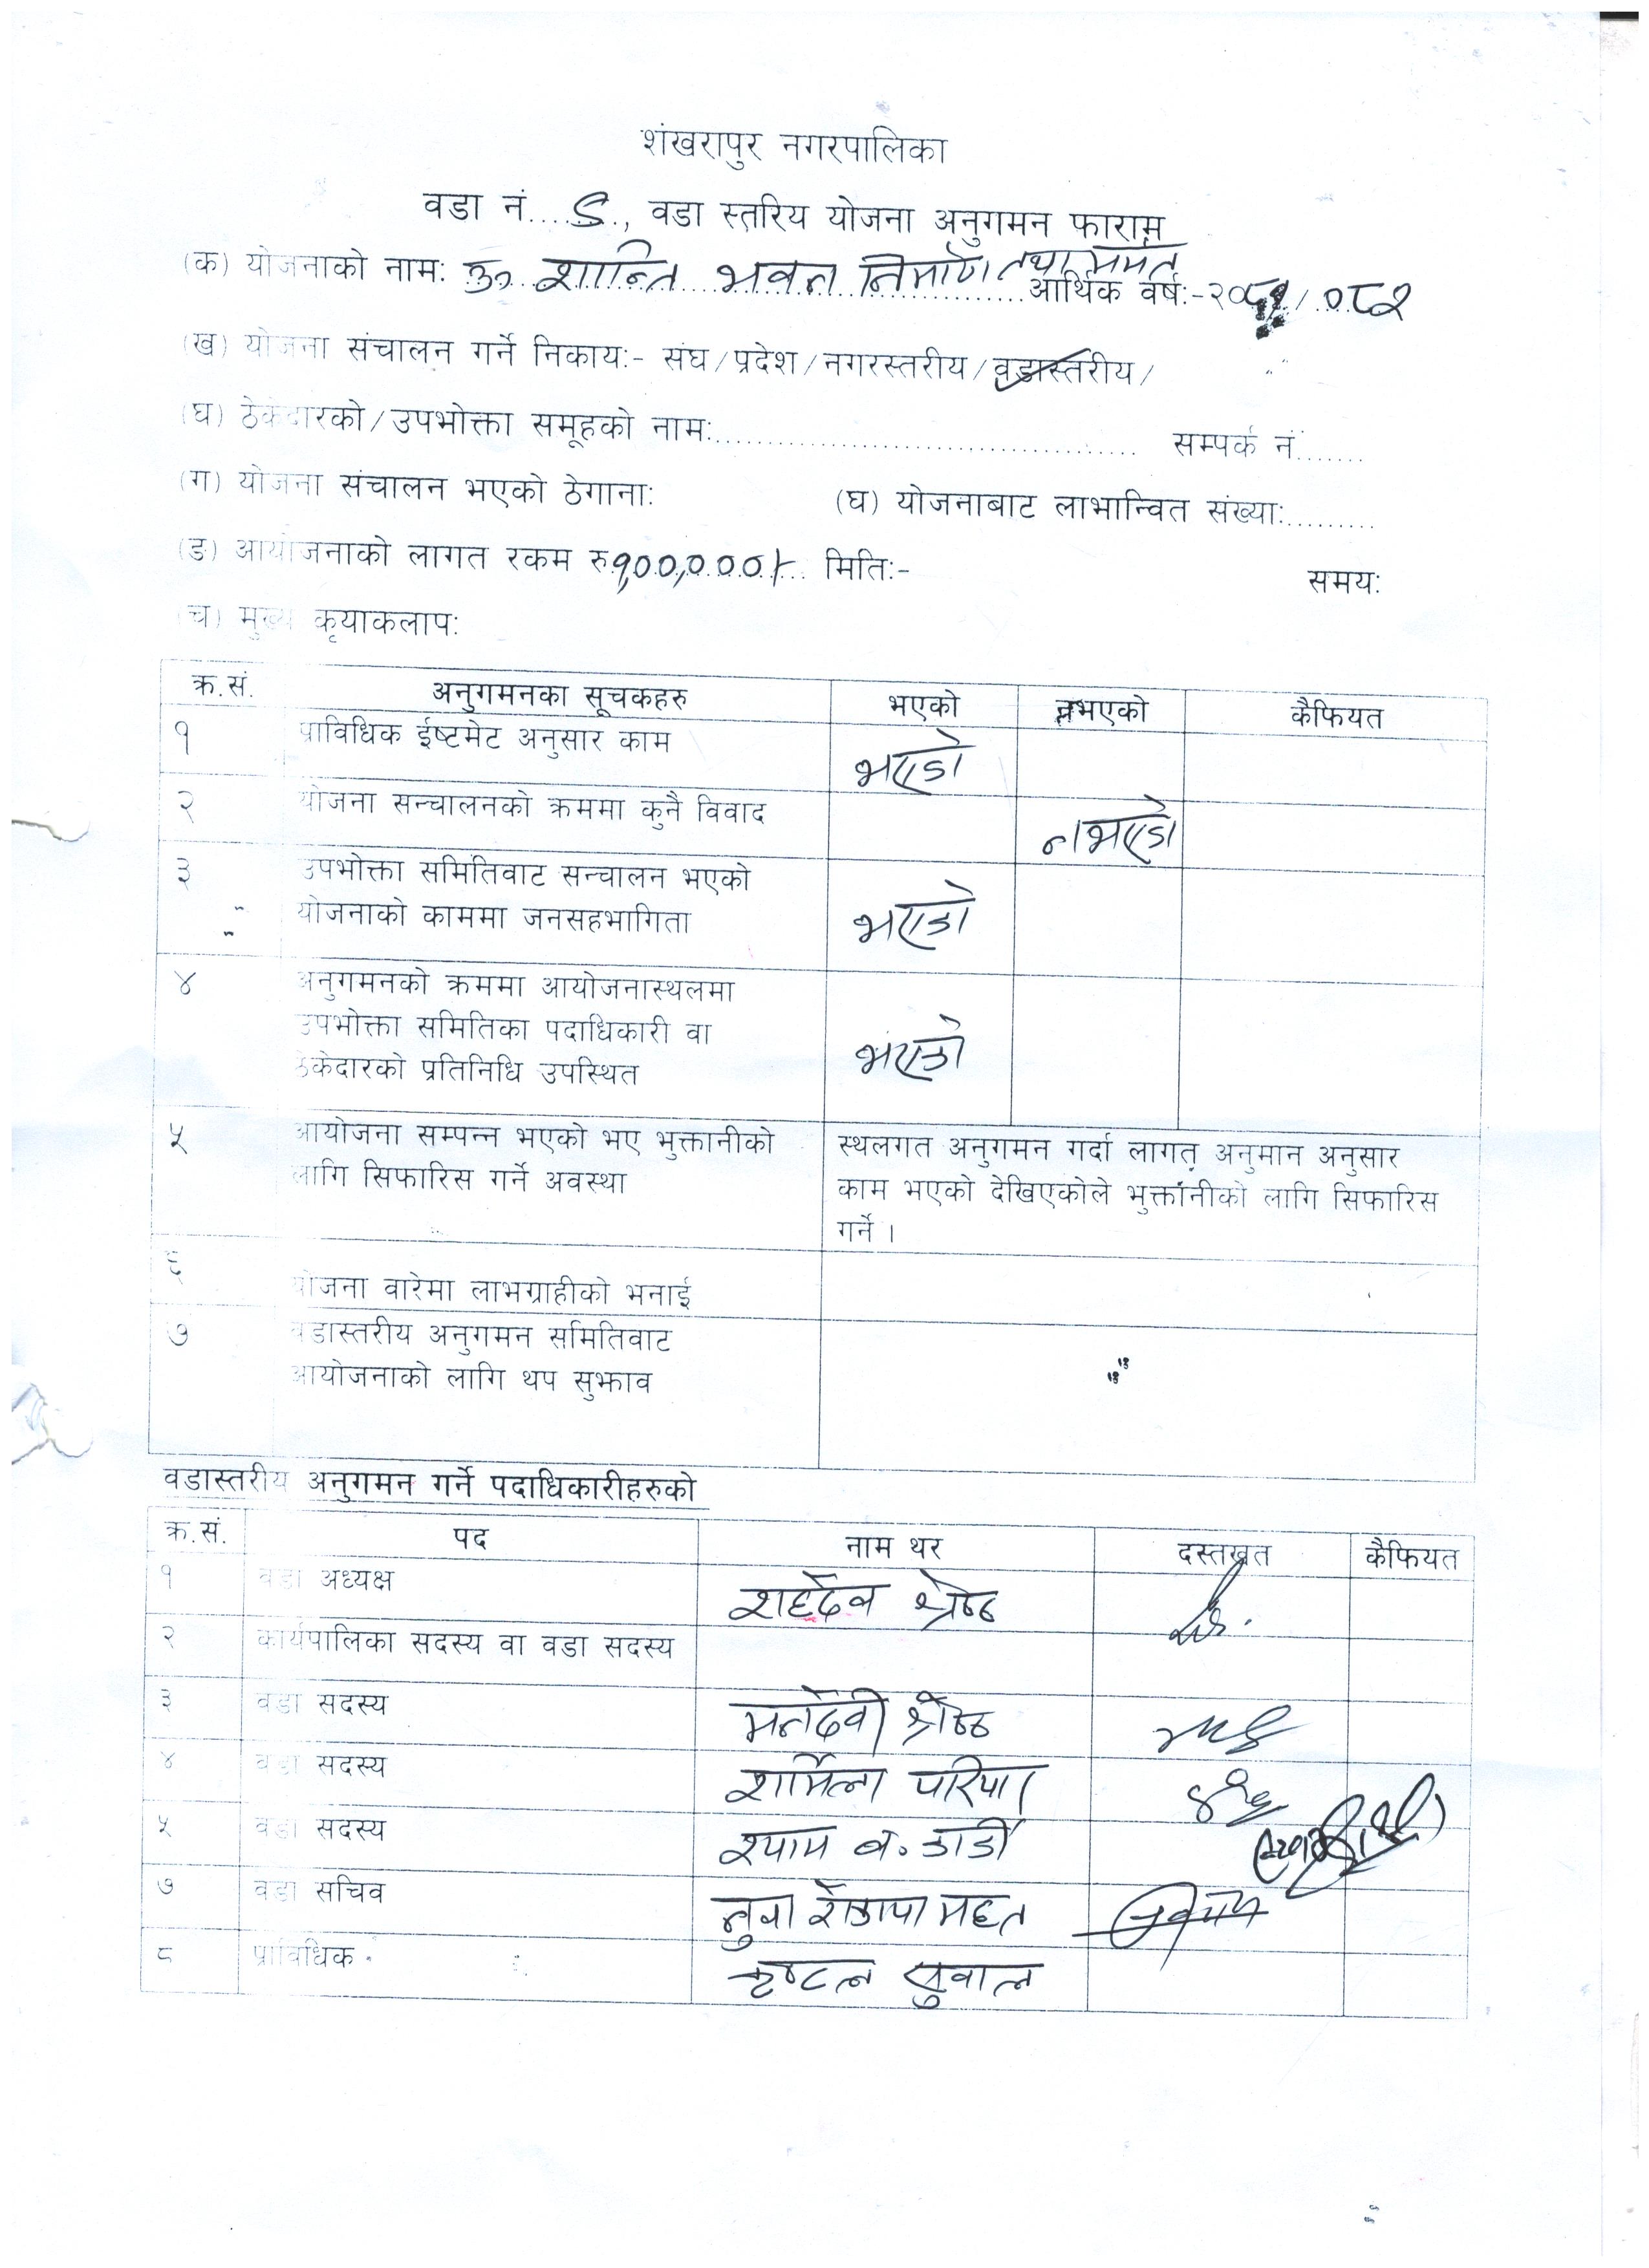 शंखरापुर नगरपालिका
वडा नं....९..., वडा स्तरिय योजना अनुगमन फाराम
(क) योजनाको नाम: ॐ शान्ति भवन निर्माण तथा मर्मत आर्थिक वर्ष:-२०८१/०८२
(ख) योजना संचालन गर्ने निकाय:- संघ/प्रदेश/नगरस्तरीय/वडास्तरीय/
(घ) ठेकेदारको/उपभोक्ता समूहको नाम:........................................ सम्पर्क नं.......
(ग) योजना संचालन भएको ठेगाना: (घ) योजनाबाट लाभान्वित संख्या:.........
(ङ) आयोजनाको लागत रकम रु १,००,०००।- मिति:- समय:
(च) मुख्य कृयाकलाप:
क्र.सं. अनुगमनका सूचकहरु भएको नभएको कैफियत
१ प्राविधिक ईष्टमेट अनुसार काम भएको
२ योजना सन्चालनको क्रममा कुनै विवाद नभएको
३ उपभोक्ता समितिवाट सन्चालन भएको
योजनाको काममा जनसहभागिता भएको
४ अनुगमनको क्रममा आयोजनास्थलमा
उपभोक्ता समितिका पदाधिकारी वा भएको
ठेकेदारको प्रतिनिधि उपस्थित
५ आयोजना सम्पन्न भएको भए भुक्तानीको स्थलगत अनुगमन गर्दा लागत अनुमान अनुसार
लागि सिफारिस गर्ने अवस्था काम भएको देखिएकोले भुक्तानीको लागि सिफारिस
गर्ने ।
६
योजना वारेमा लाभग्राहीको भनाई
७ वडास्तरीय अनुगमन समितिवाट
आयोजनाको लागि थप सुझाव
वडास्तरीय अनुगमन गर्ने पदाधिकारीहरुको
क्र.सं. पद नाम थर दस्तखत कैफियत
१ वडा अध्यक्ष शहदेव श्रेष्ठ
२ कार्यपालिका सदस्य वा वडा सदस्य
३ वडा सदस्य मनदेवी श्रेष्ठ
४ वडा सदस्य शर्मिला परियार
५ वडा सदस्य श्याम ब. कार्की
७ वडा सचिव महत
८ प्राविधिक सुवाल